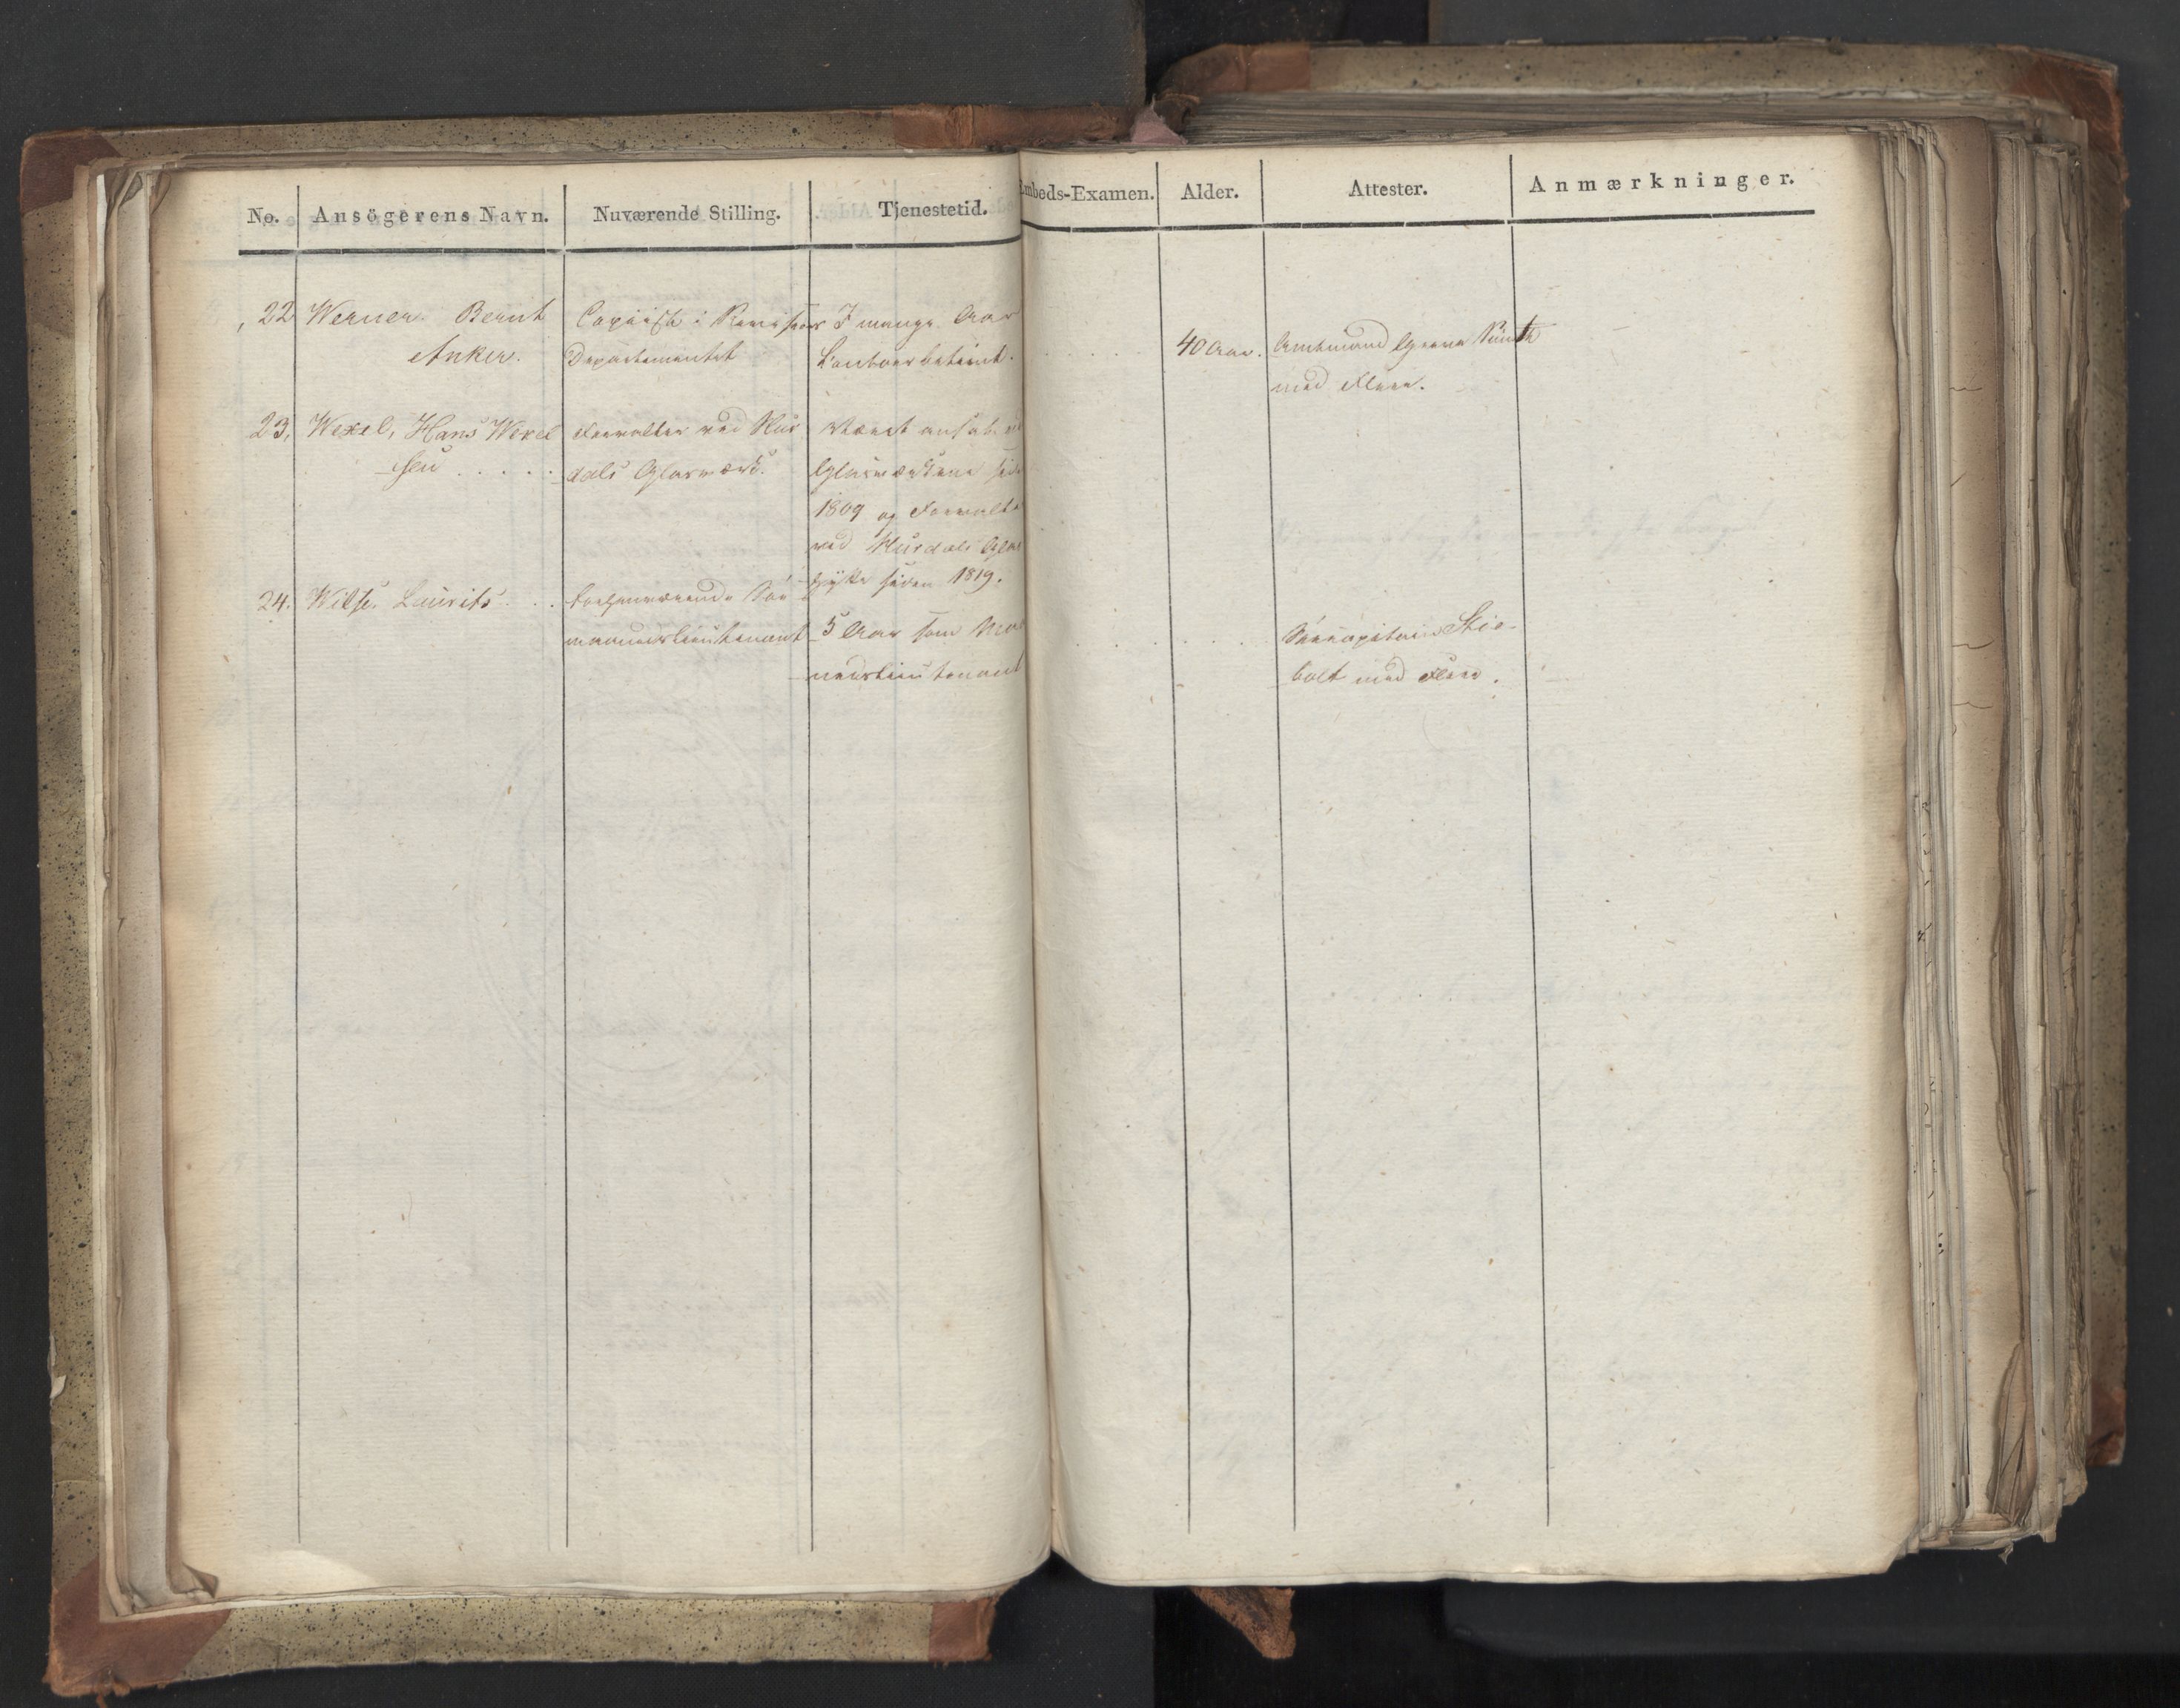 No. Ansögerens Navn. Nuværende Stilling. Tjenestetid. Embeds-Examen. Alder. Attester. Anmærkninger.
22 Werner. Bernt
Anker.
Copiist i Revisions
Departementet
I mange Aar
Contoirbetient.
40 Aar.
Amtmand
med Flere.
23, Wexel, Hans Wexel
sen . . . . .
Forvalter ved Hur
dals Glasværk.
Været ansat ved
Glasværkerne siden
1809 og Forvalter
ved Hurdals Glas
hytte siden 1819.
24. Wilse. Laurits . . .
forhenværende Søe
maanedslieutenant
5 Aar som Maa
nedslieutenant
Søecapitain Stie-
bolt med Flere.